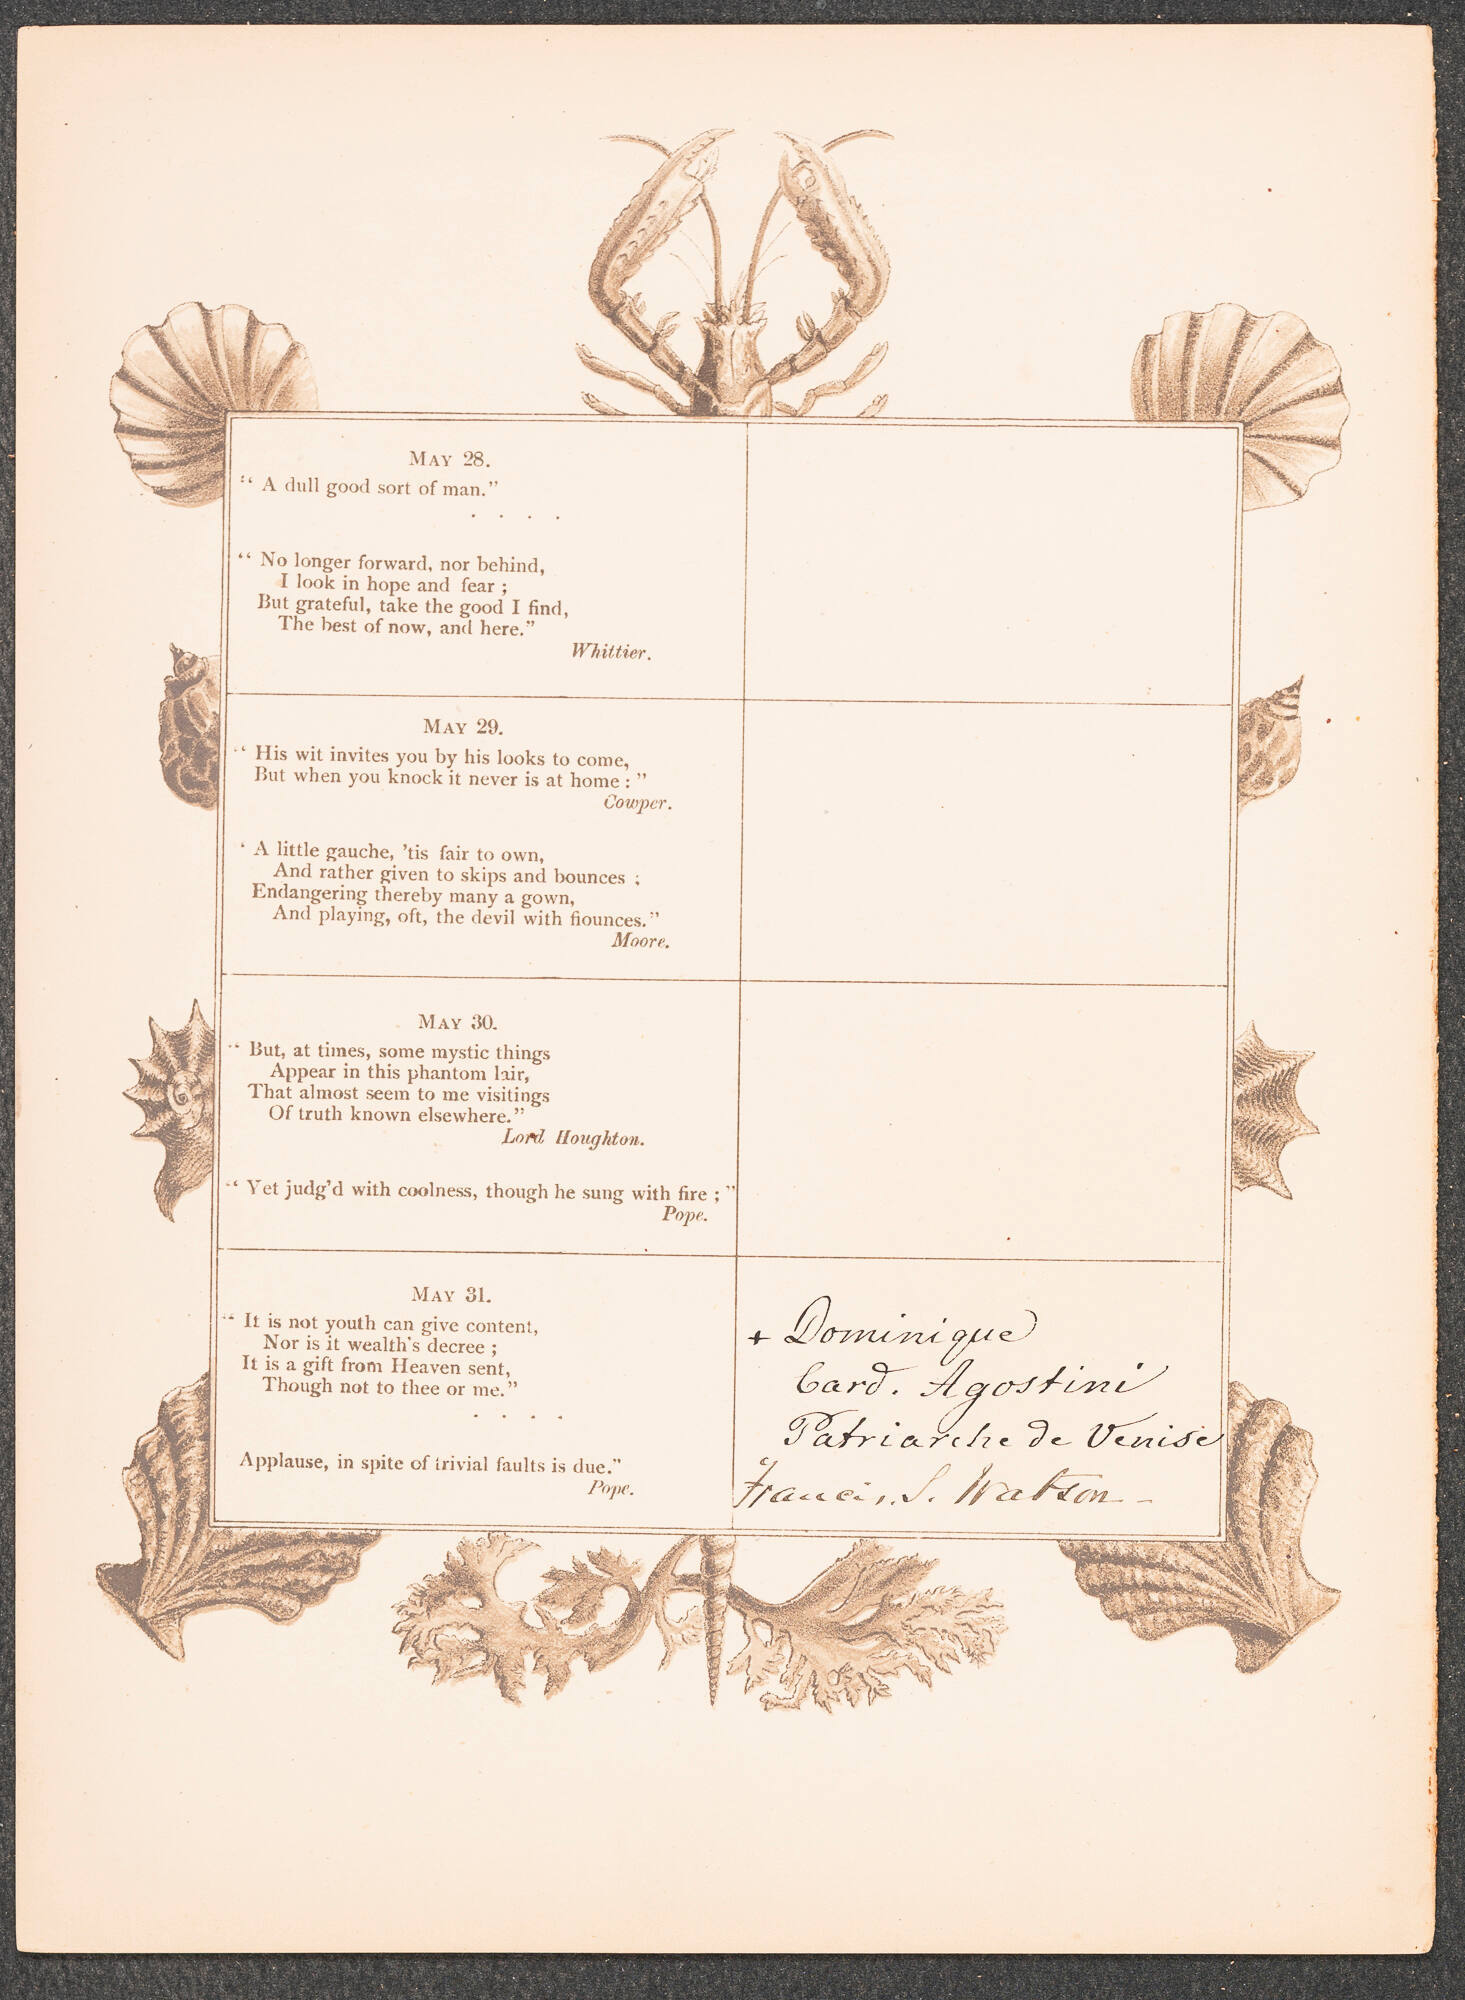 MAY 28.
“ A dull good sort of man.”
. . . .
“ No longer forward, nor behind,
I look in hope and fear ;
But grateful, take the good I find,
The best of now, and here.”
Whittier.
MAY 29.
“ His wit invites you by his looks to come,
But when you knock it never is at home : ”
Cowper.
‘ A little gauche, ’tis fair to own,
And rather given to skips and bounces ;
Endangering thereby many a gown,
And playing, oft, the devil with flounces.”
Moore.
MAY 30.
“ But, at times, some mystic things
Appear in this phantom lair,
That almost seem to me visitings
Of truth known elsewhere.”
Lord Houghton.
“ Yet judg’d with coolness, though he sung with fire ; ”
Pope.
MAY 31.
“ It is not youth can give content,
Nor is it wealth’s decree ;
It is a gift from Heaven sent,
Though not to thee or me.”
. . . .
Applause, in spite of trivial faults is due.”
Pope.
+ Dominique
Card. Agostini
Patriarche de Venise
Francis S. Watson -